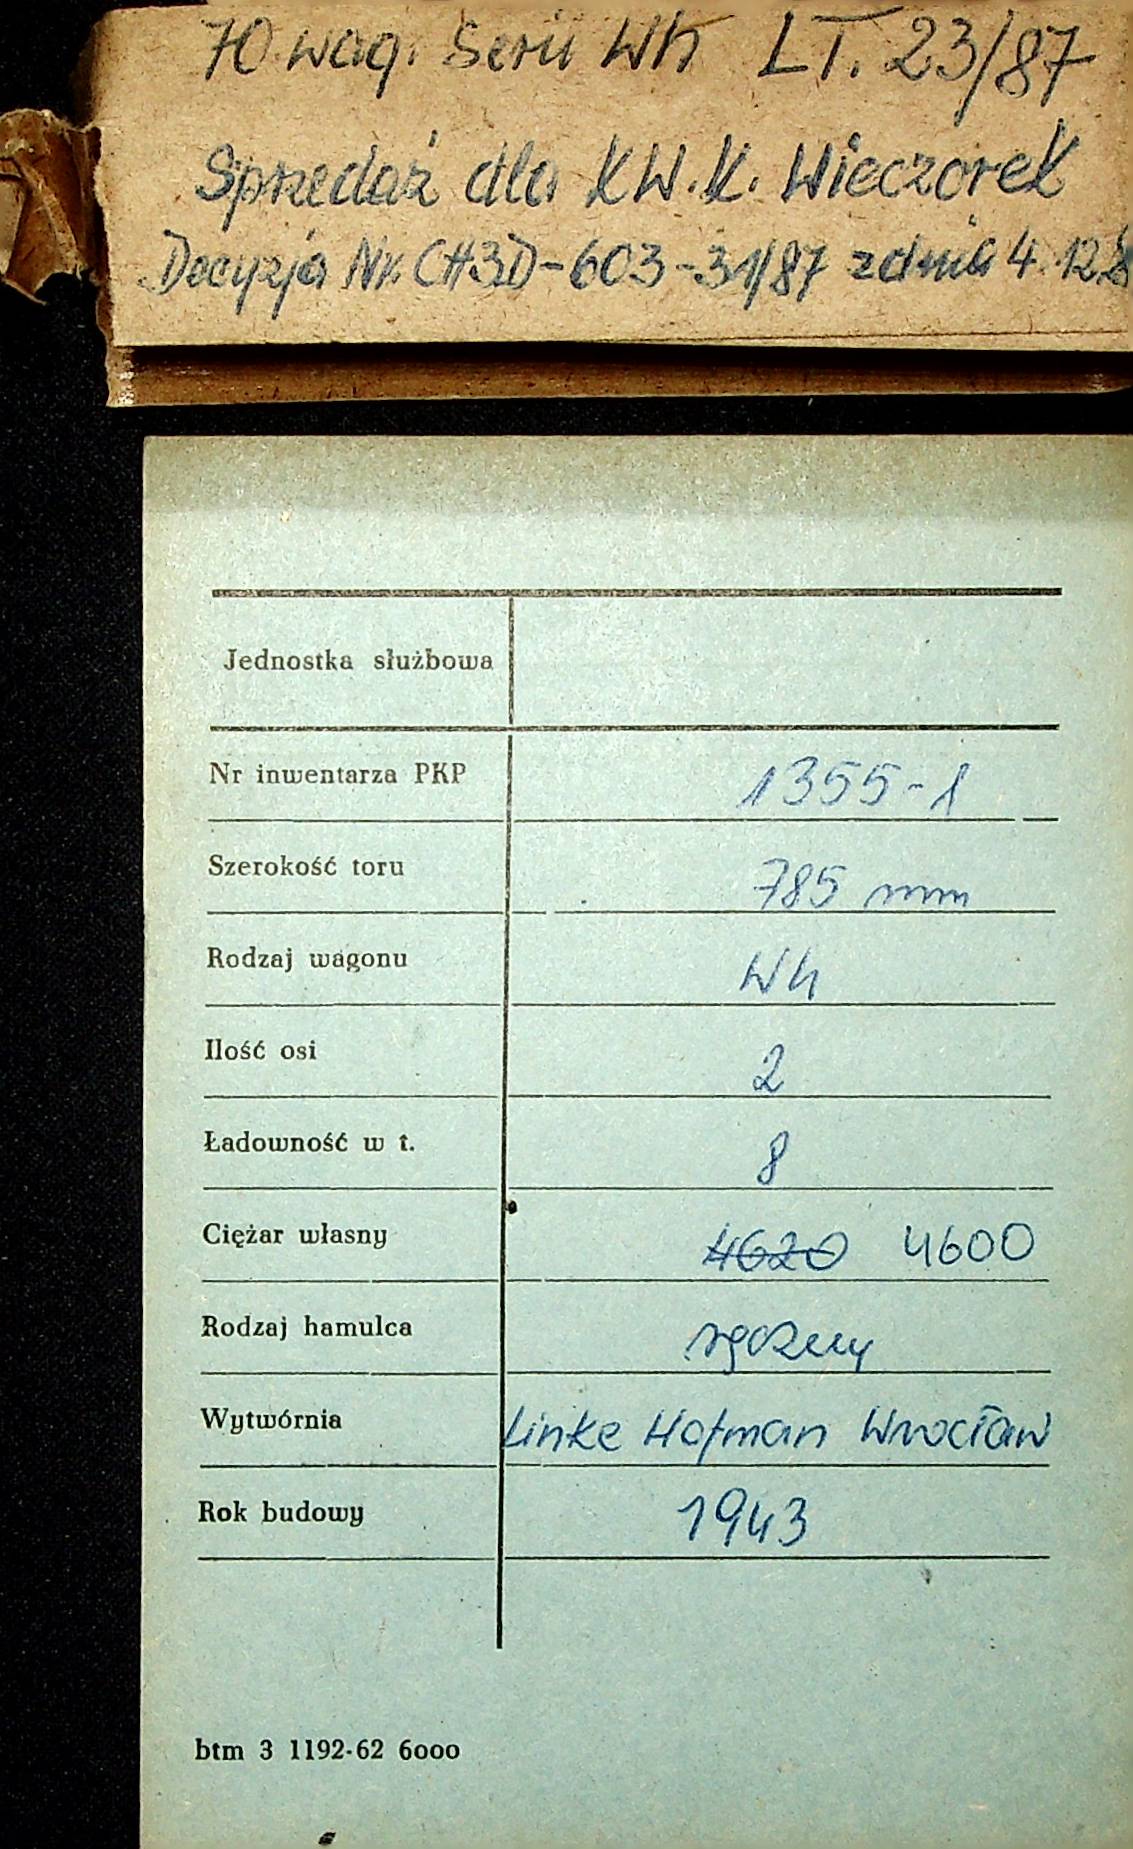 70 wag. Serii Wh LT. 23/87
Sprzedaż dla KW.K. Wieczorek
Decyzja Nr. CH3D-603-31/87 z dnia 4.12.8
Jednostka służbowa
Nr inwentarza PKP 1355-1
Szerokość toru 785 mm
Rodzaj wagonu Wh
Ilość osi 2
Ładowność w t. 8
Ciężar własny 4620 4600
Rodzaj hamulca ręczny
Wytwórnia Linke Hofman Wrocław
Rok budowy 1943
btm 3 1192-62 6000